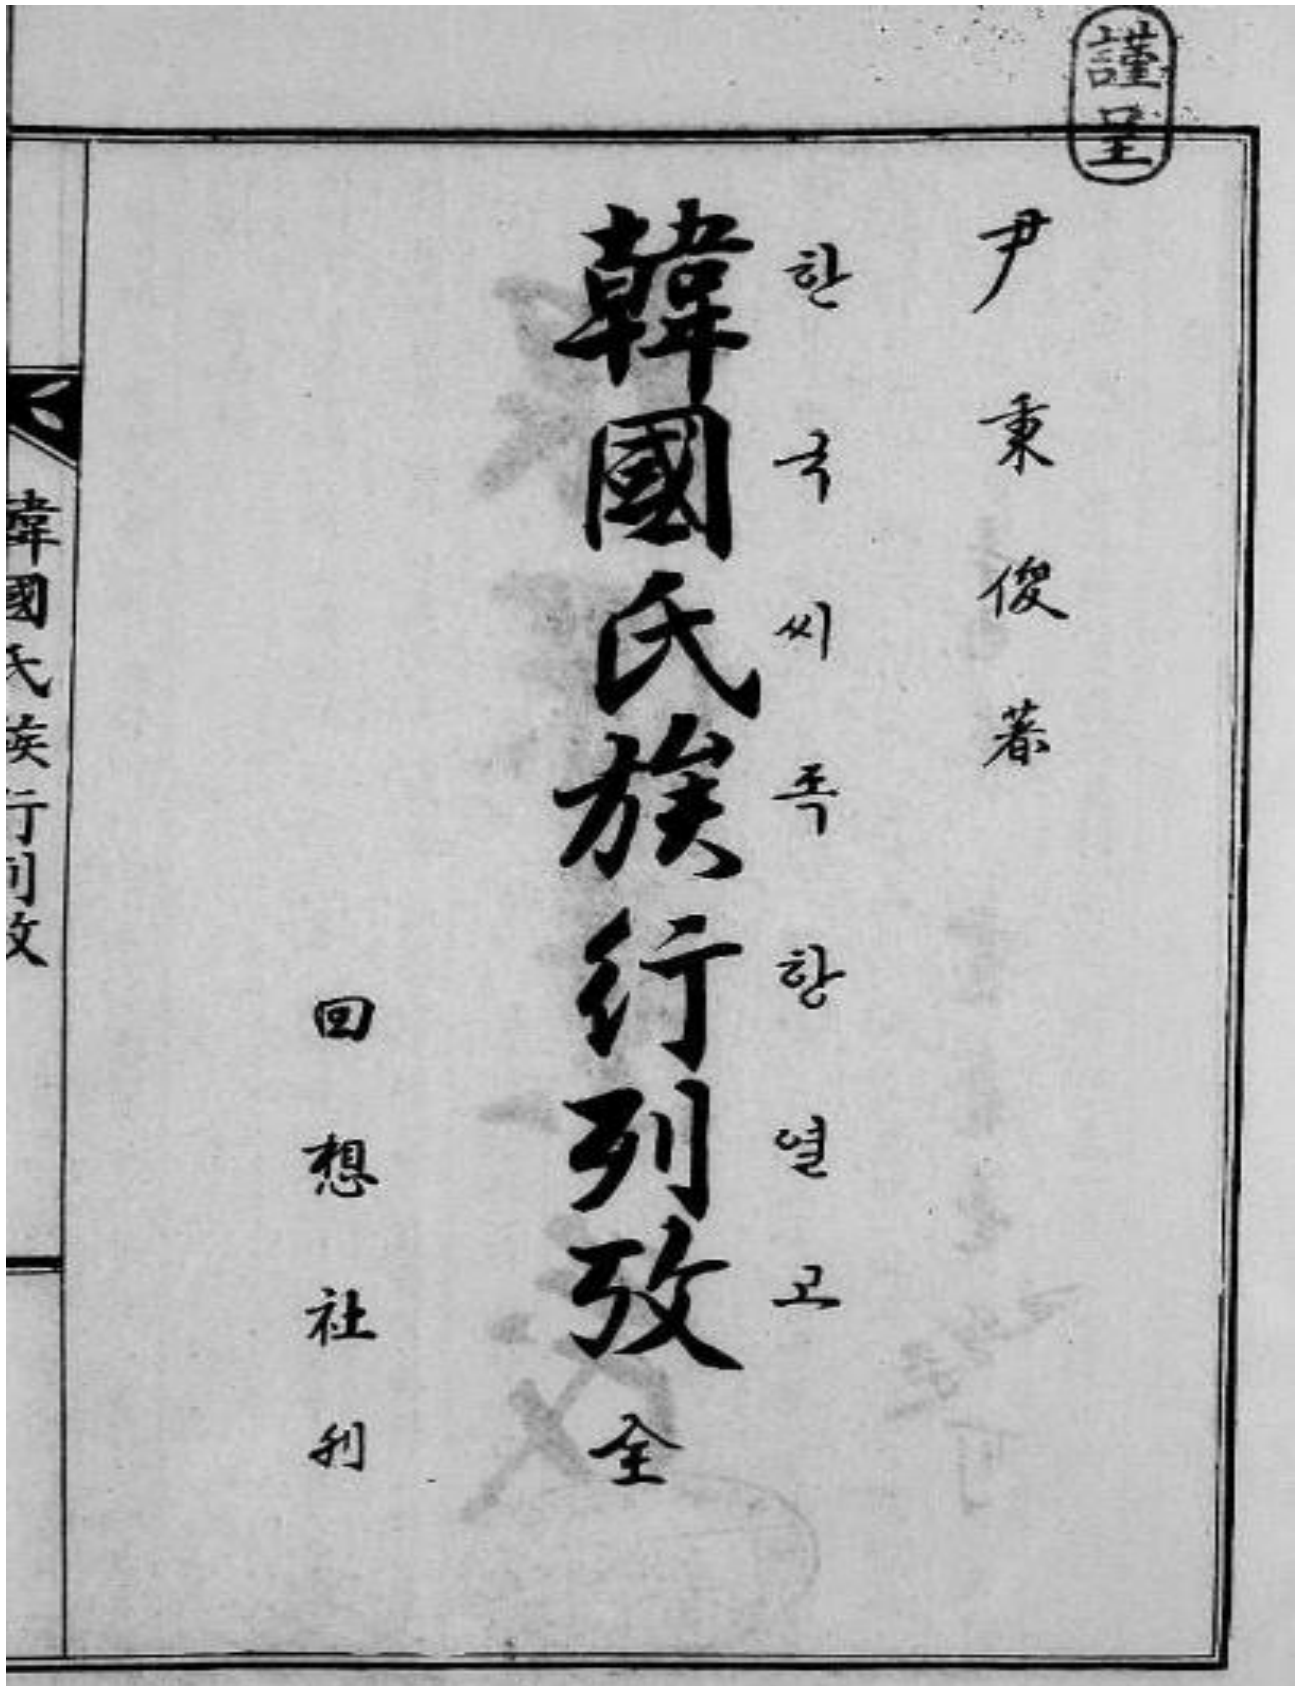 謹呈
尹秉俊著
한국씨족항열고
韓國氏族行列攷 全
回想社刊
韓國氏族行列攷